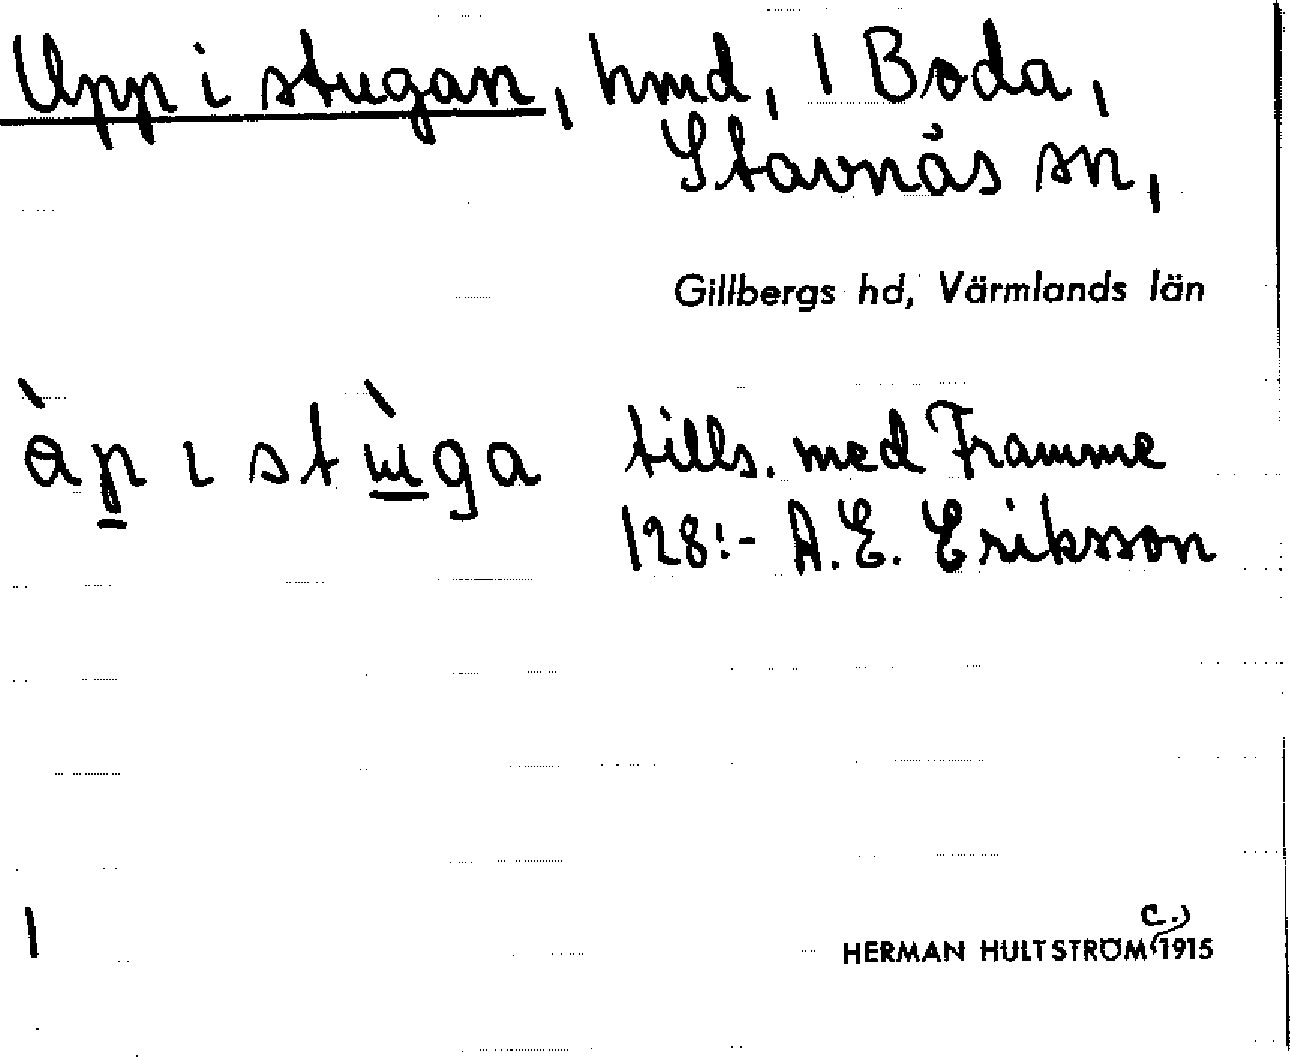 Upp i stugan, hmd, 1 Boda,
Stavnäs sn,
Gillbergs hd, Värmlands län
àp ı stɯ̀ga tills. med Framme
128:- A. E. Eriksson
1
c.)
HERMAN HULTSTRÖM (1915